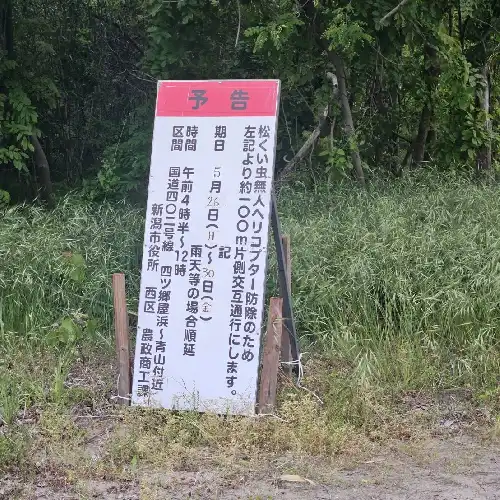 予告
松くい虫無人ヘリコプター防除のため
左記より約一〇〇m片側交互通行にします。
記
期日 5月26日(月)～30日(金)
雨天等の場合順延
時間 午前4時半～12時
区間 国道四〇二号線 四ツ郷屋浜～青山付近
新潟市役所 西区 農政商工課